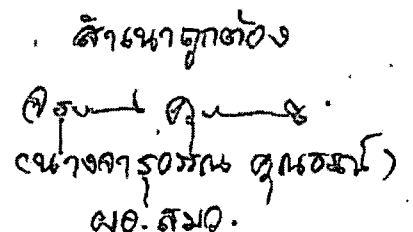 สำเนาถูกต้อง
(นางจารุวรรณ คุณธรณ์)
ผอ. สมว.